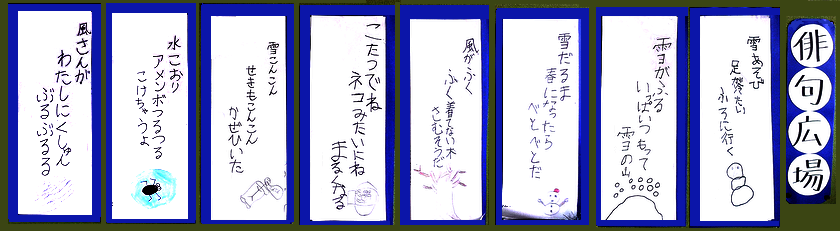 俳句広場
雪あそび
足が冷たい
ふろに行く
雪がふる
いっぱいつもって
雪の山
雪だるま
春になったら
べとべとだ
風がふく
ふく着てない木
さむそうだ
こたつでね
ネコみたいにね
まるくなる
雪こんこん
せきもこんこん
かぜひいた
水こおり
アメンボつるつる
こけちゃうよ
風さんが
わたしにくしゅん
ぶるぶるる